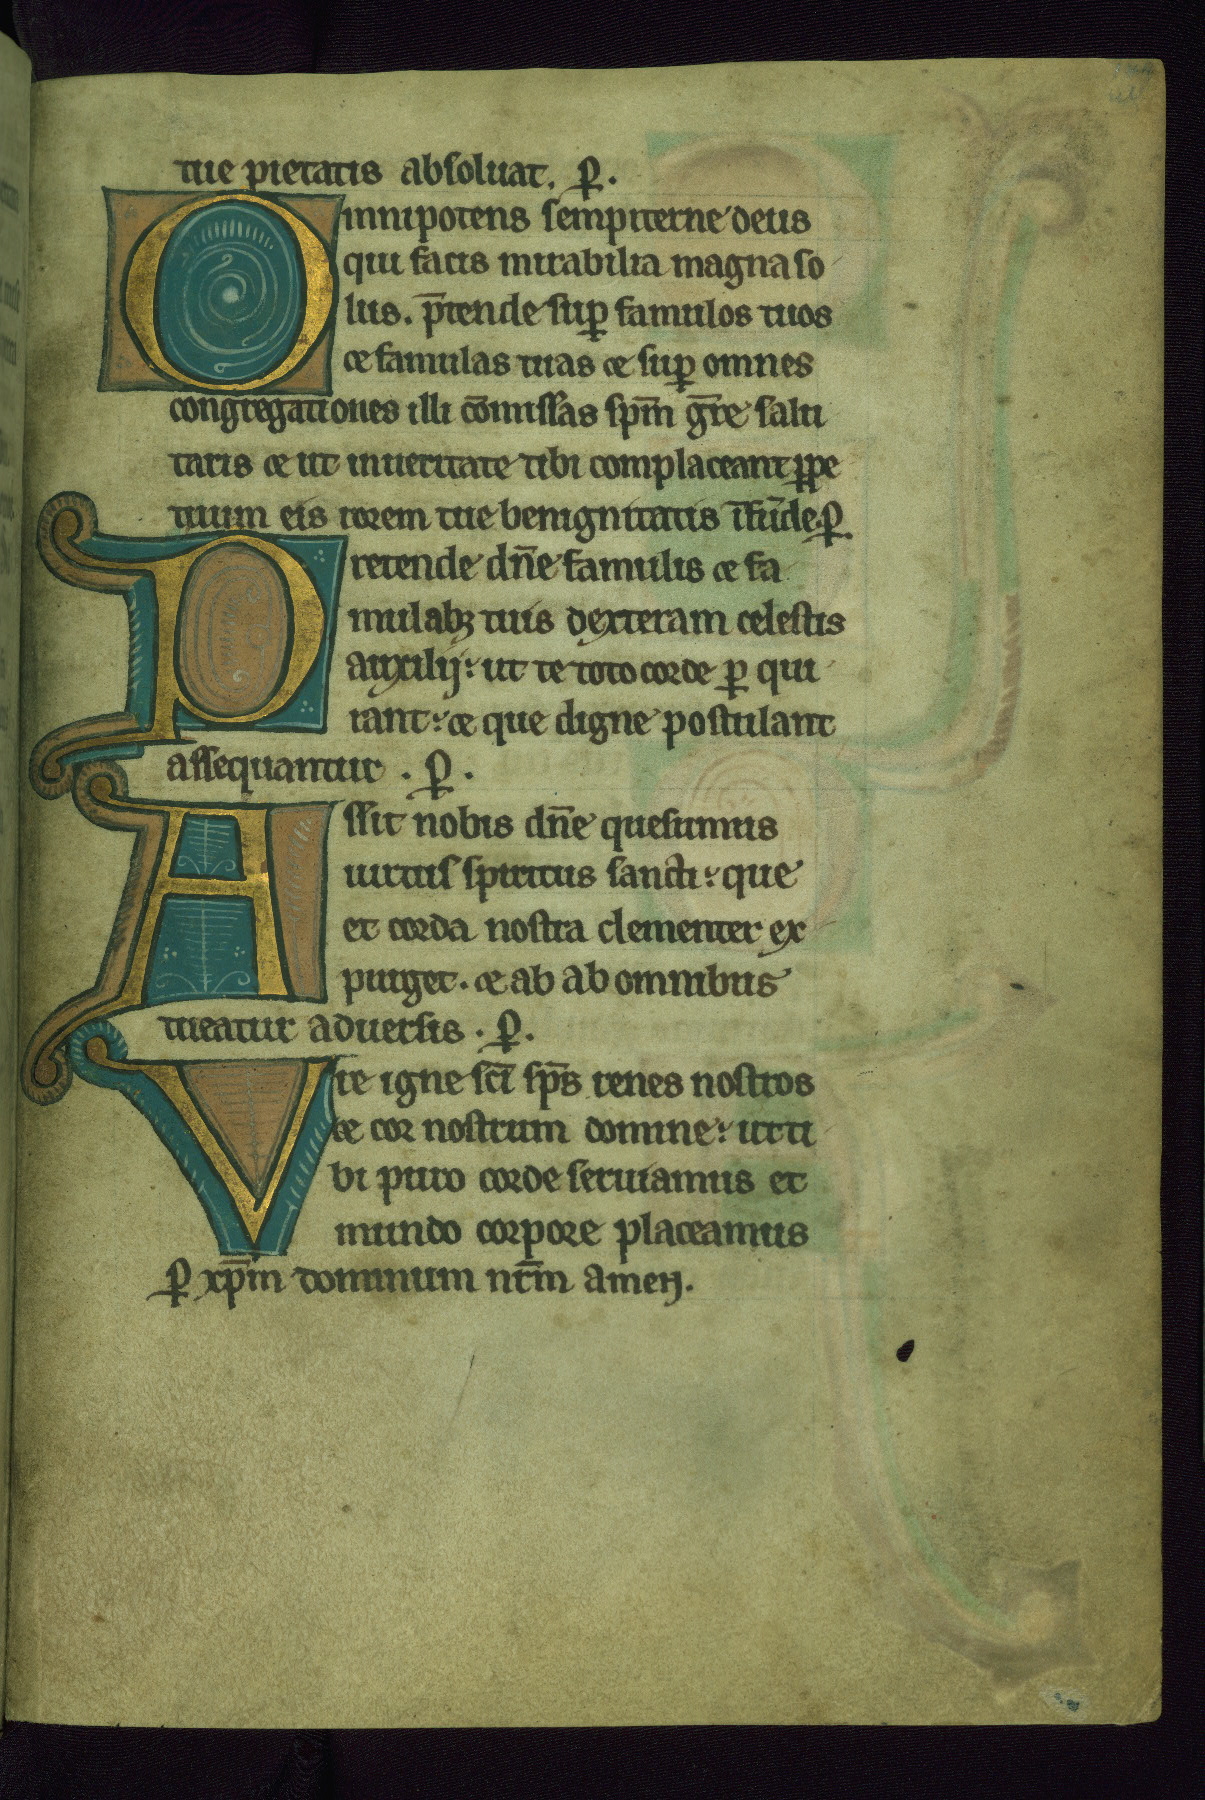 tue pietatis absoluat. p̲.
Omnipotens sempiterne deus
qui facis mirabilia magna so
lus. p̄tende sup̲ famulos tuos
⁊ famulas tuas ⁊ sup̲ omnes
congregationes illi cōmissas sp̄m gr̄e salu
taris ⁊ ut inueritate tibi complaceant p̲pe
tuum eis rorem tue benignitatis īfūde. p̲.
Pretende dn̄e famulis ⁊ fa
mulabꝫ tuis dexteram celestis
auxilij: ut te toto corde p̲ qui
rant: ⁊ que digne postulant
assequantur . p̲ .
Assit nobis dn̄e quesumus
uirtus spiritus sancti: que
et corda nostra clementer ex
purget. ⁊ ab ab omnibus
tueatur aduersis . p̲ .
Vre igne sc̄i sp̄s renes nostros
⁊ cor nostrum domine: ut ti
bi puro corde seruiamus et
mundo corpore placeamus
p̲ xp̄m dominum nr̄m amen.